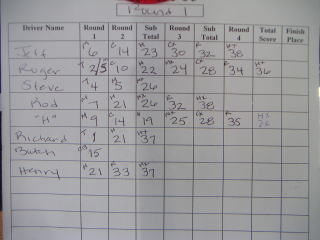 Round 1
Driver Name Round 1 Round 2 Sub Total Round 3 Sub Total Round 4 Total Score Finish Place
Jeff 6 C 14 H 23 CR 30 R 32 HT 38
Roger T 2/5 C 10 H 22 24 CR 28 R 34 H 36
Steve T 4 M 5 26
Rod 7 H 21 26 R 32 HR 38
"H" M 9 C 14 H 19 25 CR 28 R 35
Richard T 1 H 21 37
Butch CR 15
Henry H 21 R 33 37